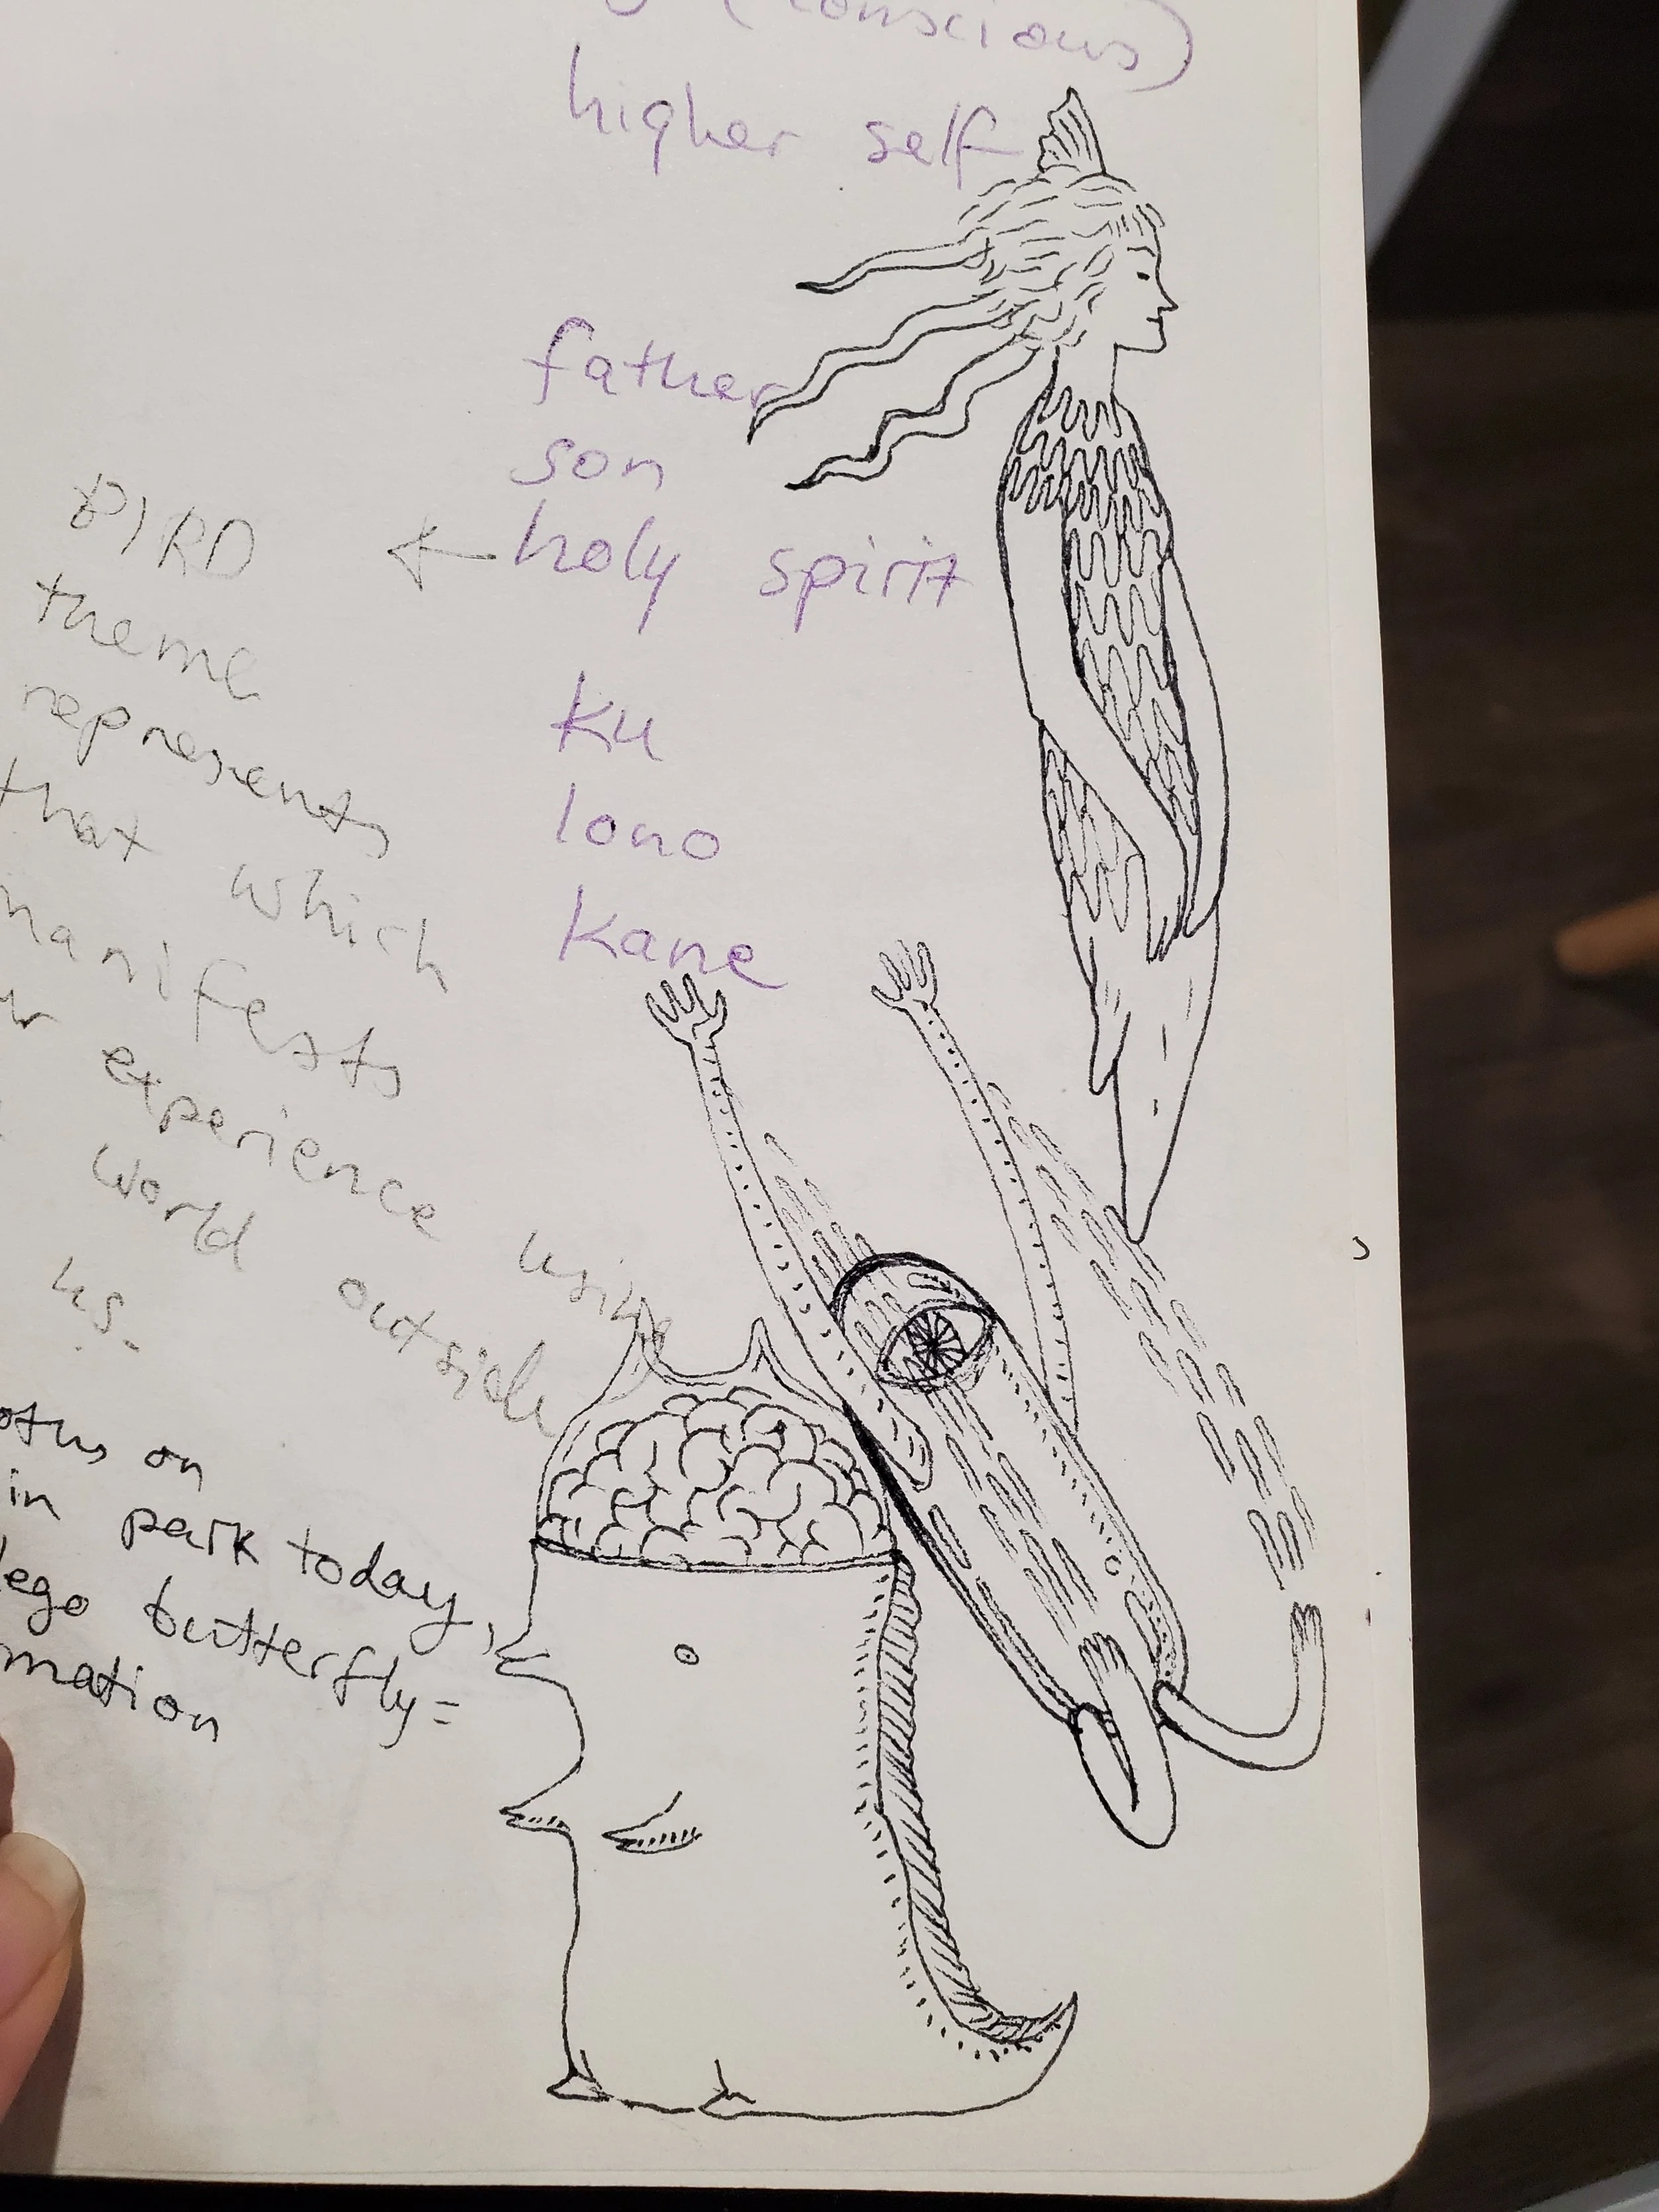 (conscious)
higher self
father
son
holy spirit
ku
lono
kane
BIRD
theme
represents
that which
manifests
experience using
world outside
us.
on
in park today,
lego butterfly=
mation